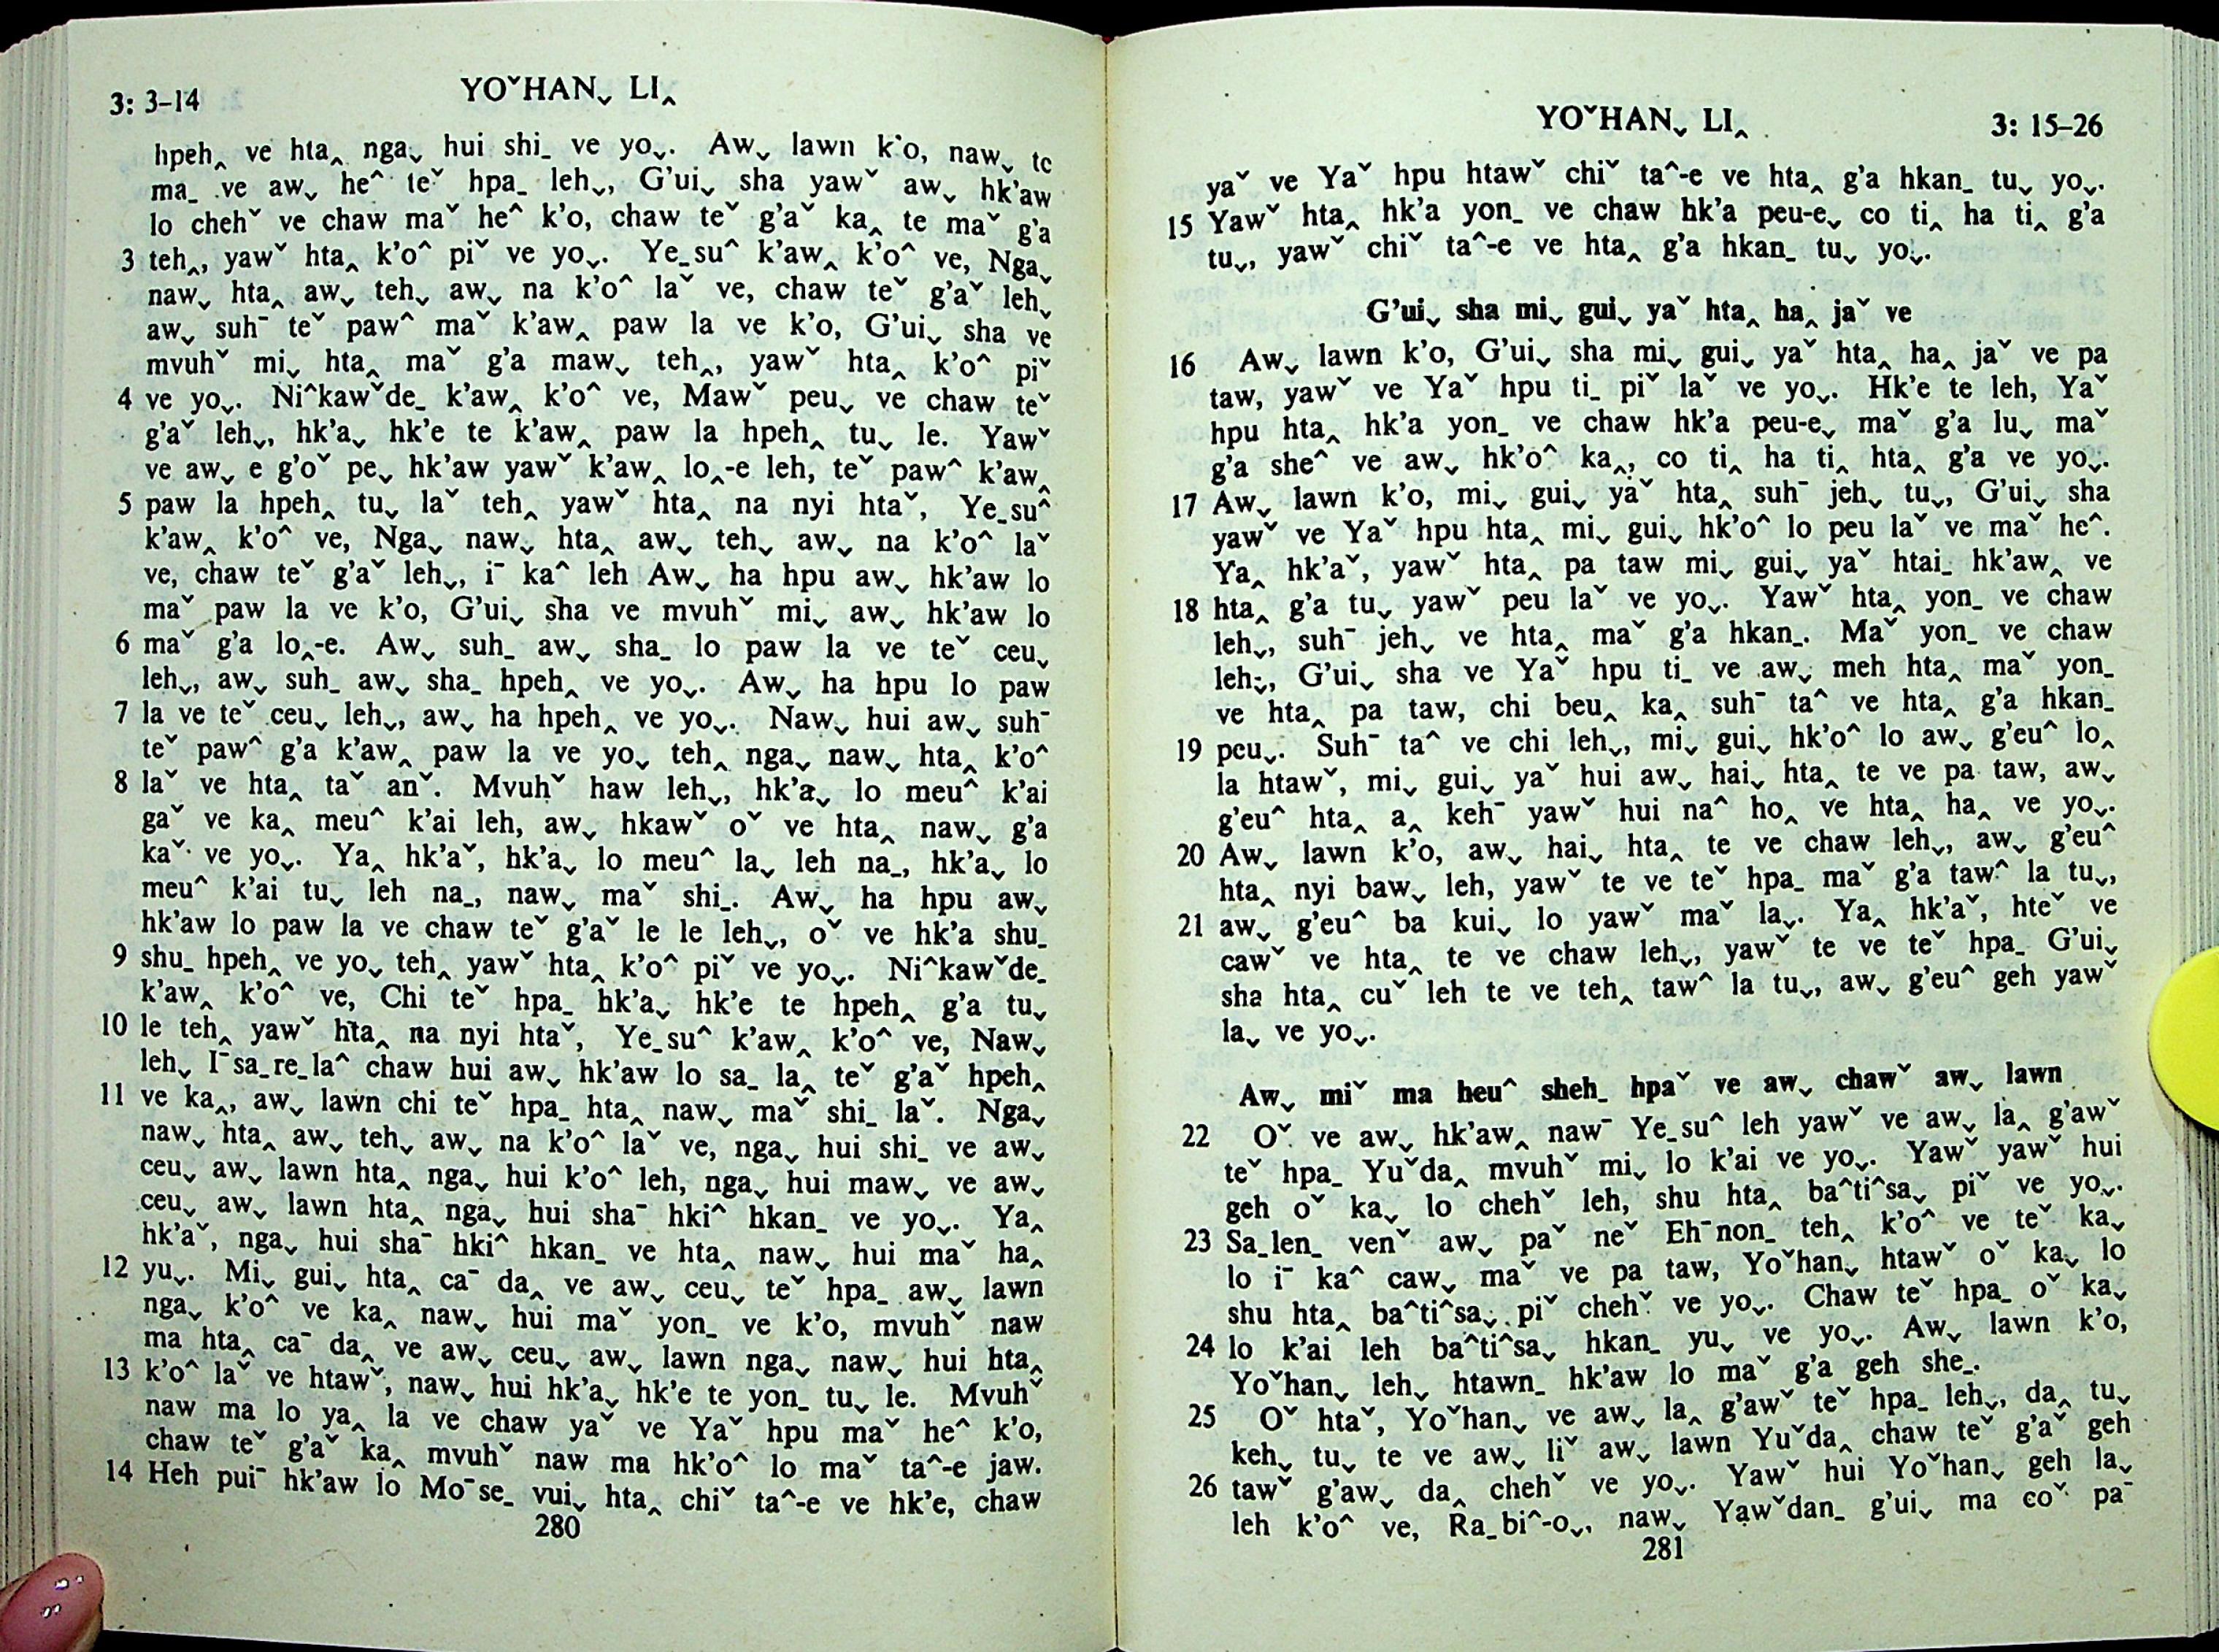 3: 3–14
YOˇHANˬ LI‸
hpeh‸ ve hta‸ ngaˬ hui shi_ ve yoˬ. Awˬ lawn k'o, nawˬ te
ma_ ve awˬ he^ teˇ hpa_ lehˬ, G'uiˬ sha yawˇ awˬ hk'aw
lo chehˇ ve chaw maˇ he^ k'o, chaw teˇ g'aˇ ka‸ te maˇ g'a
3 teh‸, yawˇ hta‸ k'o^ piˇ ve yoˬ. Ye_su^ k'aw‸ k'o^ ve, Ngaˬ
nawˬ hta‸ awˬ tehˬ awˬ na k'o^ laˇ ve, chaw teˇ g'aˇ lehˬ
awˬ suhˉ teˇ paw^ maˇ k'aw‸ paw la ve k'o, G'uiˬ sha ve
mvuhˇ miˬ hta‸ maˇ g'a mawˬ teh‸, yawˇ hta‸ k'o^ piˇ
4 ve yoˬ. Ni^kawˇde_ k'aw‸ k'o^ ve, Mawˇ peuˬ ve chaw teˇ
g'aˇ lehˬ, hk'aˬ hk'e te k'aw‸ paw la hpeh‸ tuˬ le. Yawˇ
ve awˬ e g'oˇ peˬ hk'aw yawˇ k'aw‸ lo‸-e leh, teˇ paw^ k'aw‸
5 paw la hpeh‸ tuˬ laˇ teh‸ yawˇ hta‸ na nyi htaˇ, Ye_su^
k'aw‸ k'o^ ve, Ngaˬ nawˬ hta‸ awˬ tehˬ awˬ na k'o^ laˇ
ve, chaw teˇ g'aˇ lehˬ, iˉ ka^ leh Awˬ ha hpu awˬ hk'aw lo
maˇ paw la ve k'o, G'uiˬ sha ve mvuhˇ miˬ awˬ hk'aw lo
6 maˇ g'a lo‸-e. Awˬ suh_ awˬ sha_ lo paw la ve teˇ ceuˬ
lehˬ, awˬ suh_ awˬ sha_ hpeh‸ ve yoˬ. Awˬ ha hpu lo paw
7 la ve teˇ ceuˬ lehˬ, awˬ ha hpeh‸ ve yoˬ. Nawˬ hui awˬ suhˉ
teˇ paw^ g'a k'aw‸ paw la ve yoˬ teh‸ ngaˬ nawˬ hta‸ k'o^
8 laˇ ve hta‸ taˇ anˇ. Mvuhˇ haw lehˬ, hk'aˬ lo meu^ k'ai
gaˇ ve ka‸ meu^ k'ai leh, awˬ hkawˇ oˇ ve hta‸ nawˬ g'a
kaˇ ve yoˬ. Ya‸ hk'aˇ, hk'aˬ lo meu^ laˬ leh na_, hk'aˬ lo
meu^ k'ai tuˬ leh na_, nawˬ maˇ shi_. Awˬ ha hpu awˬ
hk'aw lo paw la ve chaw teˇ g'aˇ le le lehˬ, oˇ ve hk'a shu_
9 shu_ hpeh‸ ve yoˬ teh‸ yawˇ hta‸ k'o^ piˇ ve yoˬ. Ni^kawˇde_
k'aw‸ k'o^ ve, Chi teˇ hpa_ hk'aˬ hk'e te hpeh‸ g'a tuˬ
10 le teh‸ yawˇ hta‸ na nyi htaˇ, Ye_su^ k'aw‸ k'o^ ve, Nawˬ
lehˬ Iˉsa_re_la^ chaw hui awˬ hk'aw lo sa_ la‸ teˇ g'aˇ hpeh‸
11 ve ka‸, awˬ lawn chi teˇ hpa_ hta‸ nawˬ maˇ shi_ laˇ. Ngaˬ
nawˬ hta‸ awˬ tehˬ awˬ na k'o^ laˇ ve, ngaˬ hui shi_ ve awˬ
ceuˬ awˬ lawn hta‸ ngaˬ hui k'o^ leh, ngaˬ hui mawˬ ve awˬ
ceuˬ awˬ lawn hta‸ ngaˬ hui shaˉ hki^ hkan_ ve yoˬ. Ya‸
hk'aˇ, ngaˬ hui shaˉ hki^ hkan_ ve hta‸ nawˬ hui maˇ ha‸
12 yuˬ. Miˬ guiˬ hta‸ caˉ da‸ ve awˬ ceuˬ teˇ hpa_ awˬ lawn
ngaˬ k'o^ ve ka‸ nawˬ hui maˇ yon_ ve k'o, mvuhˇ naw
ma hta‸ caˉ da‸ ve awˬ ceuˬ awˬ lawn ngaˬ nawˬ hui hta‸
13 k'o^ laˇ ve htawˇ, nawˬ hui hk'aˬ hk'e te yon_ tuˬ le. Mvuhˇ
naw ma lo ya‸ la ve chaw yaˇ ve Yaˇ hpu maˇ he^ k'o,
chaw teˇ g'aˇ ka‸ mvuhˇ naw ma hk'o^ lo maˇ ta^-e jaw.
14 Heh puiˉ hk'aw lo Moˉse_ vuiˬ hta‸ chiˇ ta^-e ve hk'e, chaw
280
YOˇHANˬ LI‸
3: 15–26
yaˇ ve Yaˇ hpu htawˇ chiˇ ta^-e ve hta‸ g'a hkan_ tuˬ yoˬ.
15 Yawˇ hta‸ hk'a yon_ ve chaw hk'a peu-eˬ co ti‸ ha ti‸ g'a
tuˬ, yawˇ chiˇ ta^-e ve hta‸ g'a hkan_ tuˬ yoˬ.
G'uiˬ sha miˬ guiˬ yaˇ hta‸ ha‸ jaˇ ve
16 Awˬ lawn k'o, G'uiˬ sha miˬ guiˬ yaˇ hta‸ ha‸ jaˇ ve pa
taw, yawˇ ve Yaˇ hpu ti_ piˇ laˇ ve yoˬ. Hk'e te leh, Yaˇ
hpu hta‸ hk'a yon_ ve chaw hk'a peu-eˬ maˇ g'a luˬ maˇ
g'a she^ ve awˬ hk'o^ ka‸, co ti‸ ha ti‸ hta‸ g'a ve yoˬ.
17 Awˬ lawn k'o, miˬ guiˬ yaˇ hta‸ suhˉ jehˬ tuˬ, G'uiˬ sha
yawˇ ve Yaˇ hpu hta‸ miˬ guiˬ hk'o^ lo peu laˇ ve maˇ he^.
Ya‸ hk'aˇ, yawˇ hta‸ pa taw miˬ guiˬ yaˇ htai_ hk'aw‸ ve
18 hta‸ g'a tuˬ yawˇ peu laˇ ve yoˬ. Yawˇ hta‸ yon_ ve chaw
lehˬ, suhˉ jehˬ ve hta‸ maˇ g'a hkan_. Maˇ yon_ ve chaw
lehˬ, G'uiˬ sha ve Yaˇ hpu ti_ ve awˬ meh hta‸ maˇ yon_
ve hta‸ pa taw, chi beu‸ ka‸ suhˉ ta^ ve hta‸ g'a hkan_
19 peuˬ. Suhˉ ta^ ve chi lehˬ, miˬ guiˬ hk'o^ lo awˬ g'eu^ lo‸
la htawˇ, miˬ guiˬ yaˇ hui awˬ haiˬ hta‸ te ve pa taw, awˬ
g'eu^ hta‸ a‸ kehˉ yawˇ hui na^ ho‸ ve hta‸ ha‸ ve yoˬ.
20 Awˬ lawn k'o, awˬ haiˬ hta‸ te ve chaw lehˬ, awˬ g'eu^
hta‸ nyi bawˬ leh, yawˇ te ve teˇ hpa_ maˇ g'a taw^ la tuˬ,
21 awˬ g'eu^ ba kuiˬ lo yawˇ maˇ laˬ. Ya‸ hk'aˇ, hteˇ ve
cawˇ ve hta‸ te ve chaw lehˬ, yawˇ te ve teˇ hpa_ G'uiˬ
sha hta‸ cuˇ leh te ve teh‸ taw^ la tuˬ, awˬ g'eu^ geh yawˇ
laˬ ve yoˬ.
Awˬ miˇ ma heu^ sheh_ hpaˇ ve awˬ chawˇ awˬ lawn
22 Oˇ ve awˬ hk'aw‸ nawˉ Ye_su^ leh yawˇ ve awˬ la‸ g'awˇ
teˇ hpa_ Yuˇda‸ mvuhˇ miˬ lo k'ai ve yoˬ. Yawˇ yawˇ hui
geh oˇ kaˬ lo chehˇ leh, shu hta‸ ba^ti^saˬ piˇ ve yoˬ.
23 Sa_len_ venˇ awˬ paˇ neˇ Ehˉnon_ teh‸ k'o^ ve teˇ kaˬ
lo iˉ ka^ cawˬ maˇ ve pa taw, Yoˇhanˬ htawˇ oˇ kaˬ lo
shu hta‸ ba^ti^saˬ piˇ chehˇ ve yoˬ. Chaw teˇ hpa_ oˇ kaˬ
24 lo k'ai leh ba^ti^saˬ hkan_ yuˬ ve yoˬ. Awˬ lawn k'o,
Yoˇhanˬ lehˬ htawn_ hk'aw lo maˇ g'a geh she_.
25 Oˇ htaˇ, Yoˇhanˬ ve awˬ la‸ g'awˇ teˇ hpa_ lehˬ, da‸ tuˬ
kehˬ tuˬ te ve awˬ liˇ awˬ lawn Yuˇda‸ chaw teˇ g'aˇ geh
26 tawˇ g'awˬ da‸ chehˇ ve yoˬ. Yawˇ hui Yoˇhanˬ geh laˬ
leh k'o^ ve, Ra_bi^-oˬ, nawˬ Yawˇdan_ g'uiˬ ma coˇ paˉ
281